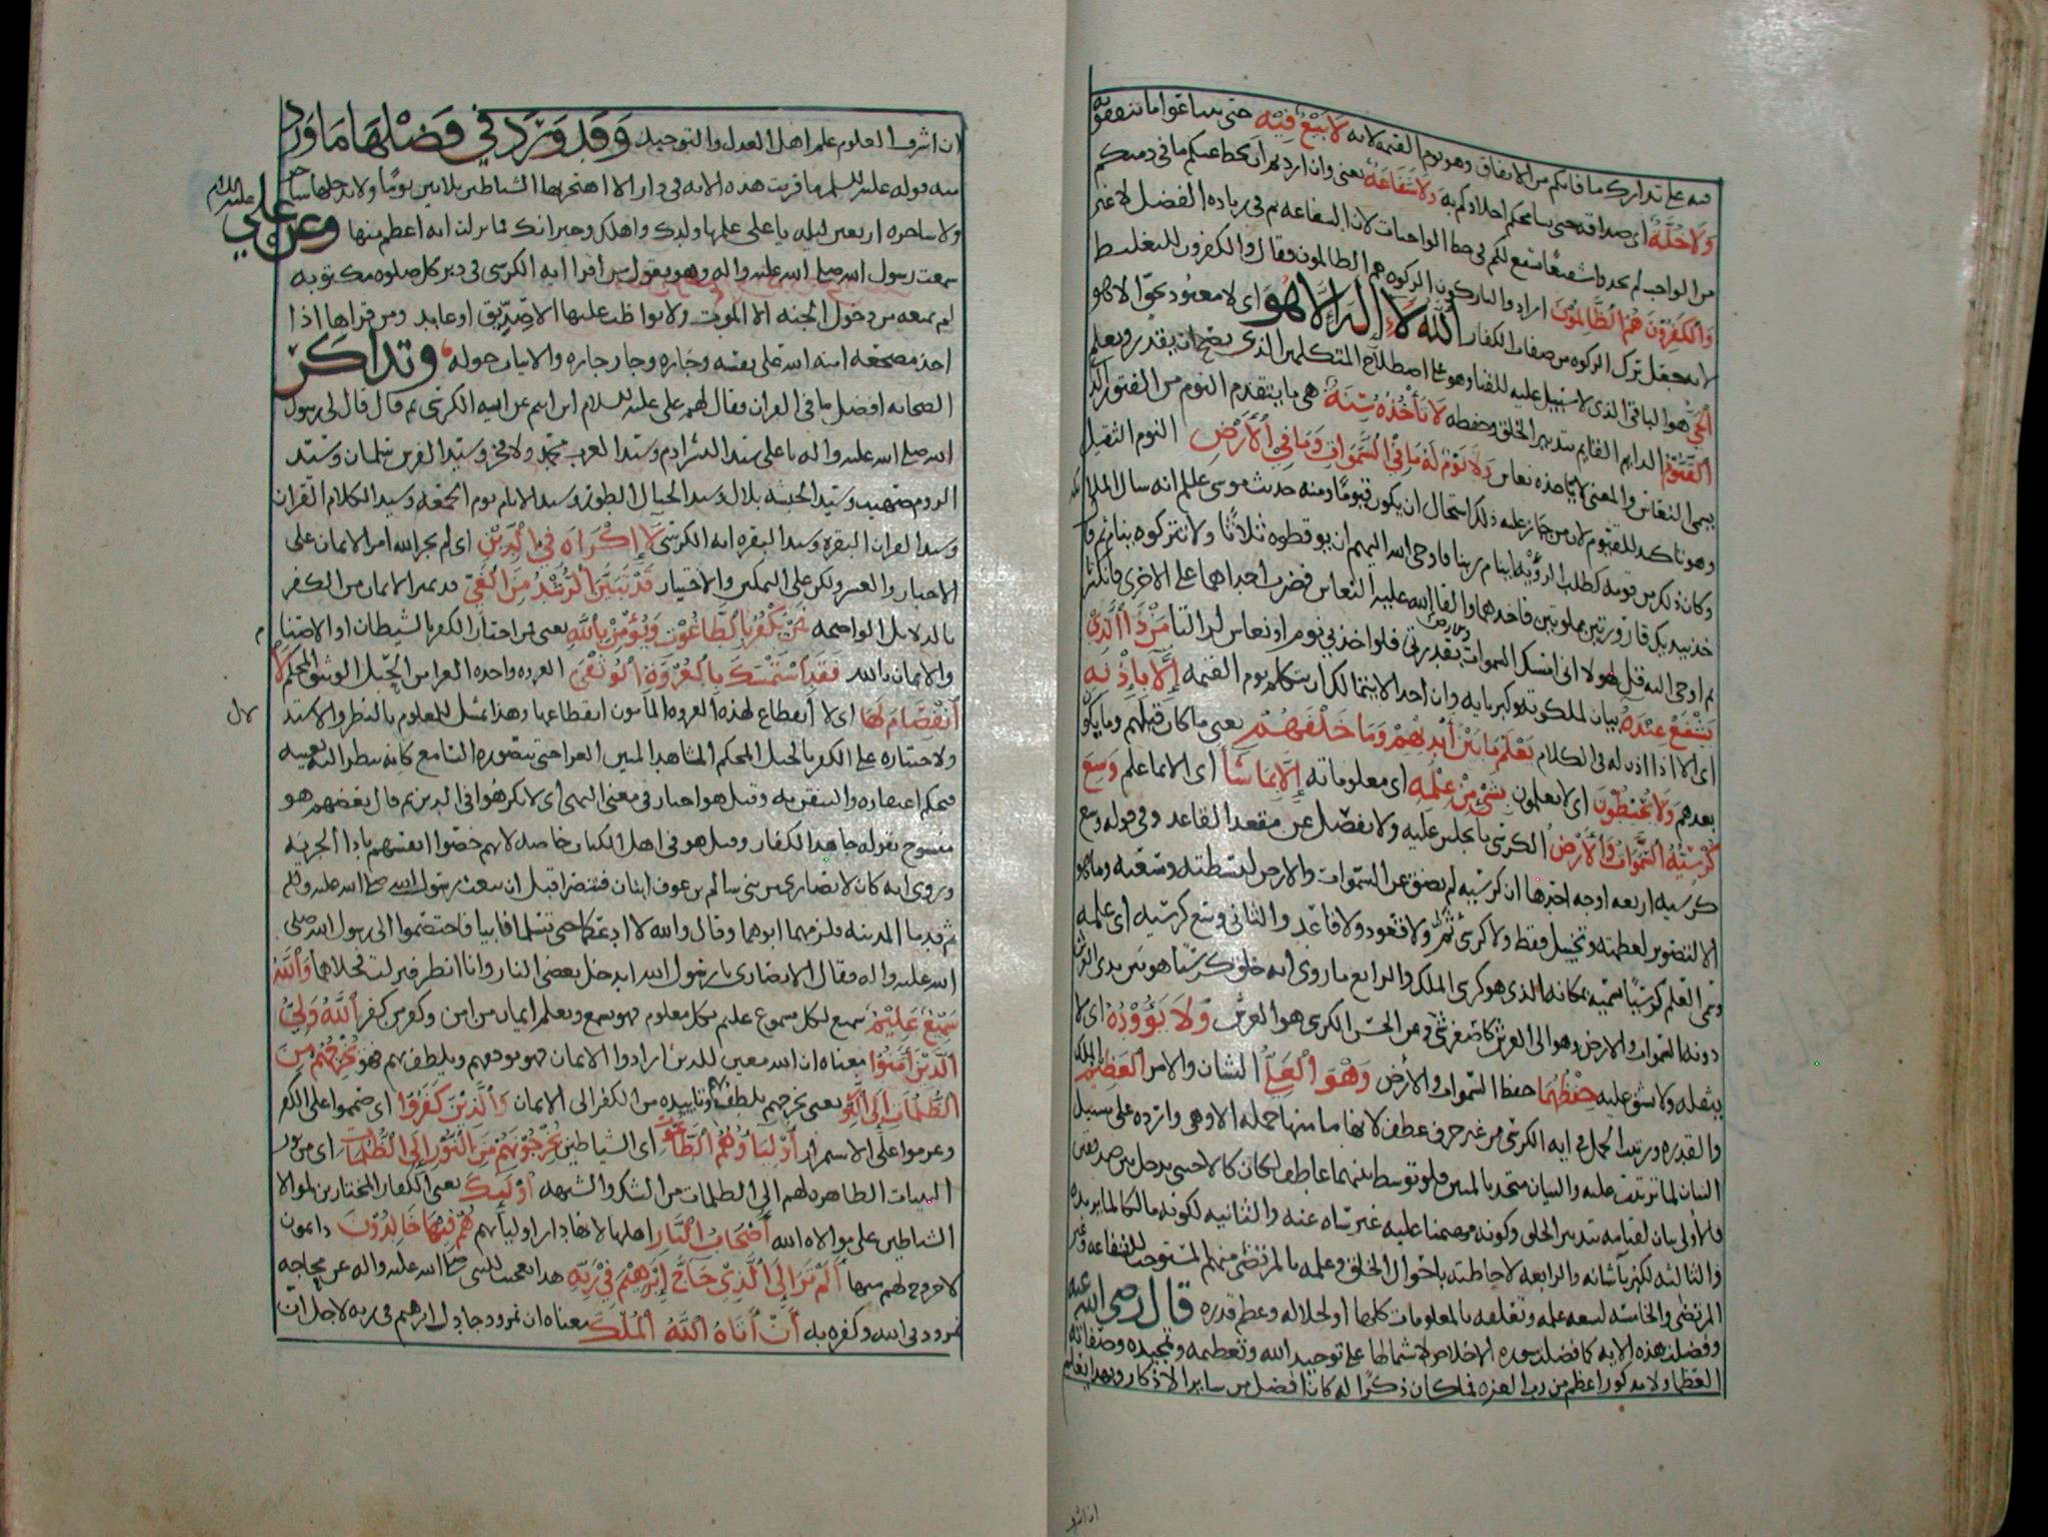 فيه على تدارك ما فاتكم من الانفاق وهو يوم القيمه لانه لَا بَيْعٌ فِيْهِ حتى تبتاعوا ما تنفقونه
وَلَا خُلَّةٌ اى صداقه حتى يسامحكم اخلاؤكم به وَلَا شَفَاعَةٌ يعنى وان اردتم ان يحط عنكم ما فى ذمتكم
من الواجب لم تجدوا شفيعا يشفع لكم فى حط الواجبات لان الشفاعه ثم فى زياده الفضل لا غير
وَالْكَفِرُوْنَ هُمُ الظَّالِمُوْنَ اراد والتاركون الزكوه هم الظالمون فقال والكفرون للتغليظ
لانه جعل ترك الزكوه من صفات الكفار اَللَّهُ لَا إِلَهَ إِلَّا هُوَ اى لا معبود بحق الا هو
أَلْحَيُّ هو الباقى الذى لا سبيل عليه للفنا وهو على اصطلاح المتكلمين الذى يصح ان يقدر ويعلم
اَلْقَيُّوْمُ الدايم القايم بتدبير الخلق وحفظه لَا تَأْخُذُهُ سِنَةٌ هى ما يتقدم النوم من الفتور الذى
يسمى النعاس والمعنى لا ياخذه نعاس وَلَا نَوْمٌ لَهُ مَا فِي السَّمَوَاتِ وَمَا فِي الْأَرْضِ النوم الثقيل
وهو تاكيد للقيوم لان من جاز عليه ذلك استحال ان يكون قيوما ومنه حديث موسى علم انه سال الملئكه
وكان ذلك من قومه كطلب الرؤيه اينام ربنا فاوحى الله اليهم ان يوقظوه ثلاثا ولا تتركوه ينام ثم قال
خذ بيديك قارورتين مملوتين فاخذهما والقى الله عليه النعاس فضرب احداهما على الاخرى فانكسرتا
ثم اوحى اليه قل لهولا انى امسك السموات والارض بقدرتى فلو اخذنى نوم او نعاس لزالتا مَنْ ذَا الَّذِيْ
يَشْفَعُ عِنْدَهُ بيان لملكوته وكبريايه وان احدا لا يتمالك ان يتكلم يوم القيمه إِلَّا بِإِذْنِهِ
اى الا اذا اذن له فى الكلام يَعْلَمُ مَا بَيْنَ أَيْدِيْهِمْ وَمَا خَلْفَهُمْ يعنى ما كان قبلهم وما يكون
بعدهم وَلَا يُحِيْطُوْنَ اى لا يعلمون بِشَيْءٍ مِنْ عِلْمِهِ اى معلوماته إِلَّا بِمَا شَاءَ اى الا بما علم وَسِعَ
كُرْسِيُّهُ السَّمَوَاتِ وَالْأَرْضَ الكرسى ما يجلس عليه ولا يفضل عن مقعد القاعد وفى قوله وسع
كرسيه اربعه اوجه احدها ان كرسيه لم يضق عن السموات والارض لبسطته وسعته وما هو
الا تصوير لعظمته وتخييل فقط ولا كرسى ثم ولا قعود ولا قاعد والثانى وسع كرسيه اى علمه
وسمى العلم كرسيا تسميه بمكانه الذى هو كرسى الملك والرابع ما روى انه خلق كرسيا هو بين يدى العرش
دونه السموات والارض وهو الى العرش كاصغر شى وعن الحسن الكرسى هو العرش وَلَا يَؤُوْدُهُ اى لا
يثقله ولا يشق عليه حِفْظُهُمَا حفظ السموات والارض وَهُوَ الْعَلِيُّ الشان والامر الْعَظِيْمُ الملك
والقدره وترتيب الجمل فى ايه الكرسى من غير حرف عطف لانها ما منها جمله الا وهى وارده على سبيل
البيان لما ترتبت عليه والبيان متحد بالمبين فلو توسط بينهما عاطف لكان كالاجنبى يدخل بين صديقين
فالاولى بيان لقيامه بتدبير الخلق وكونه مهيمنا عليه غير ساه عنه والثانيه لكونه مالكا لما يدبره
والثالثه لكبريا شانه والرابعه لاحاطته باحوال الخلق وعلمه بالمرتضى منهم المستوجب للشفاعه وغير
المرتضى والخامسه لسعه علمه وتعلقه بالمعلومات كلها او لجلاله وعظم قدره قال رضى الله عنه
وفضلت هذه الايه كما فضلت سوره الاخلاص لاشتمالها على توحيد الله وتعظيمه وتمجيده وصفاته
العظمى ولا مذكور اعظم من رب العزه فما كان ذكرا له كان افضل من ساير الاذكار وبهذا يعلم
ان اشرف العلوم علم اهل العدل والتوحيد وَقَدْ وَرَدَ فِي فَضْلِهَا مَا وَرَدَ
منه قوله عليه السلم ما قريت هذه الايه فى دار الا اهتجرتها الشياطين ثلاثين يوما ولا يدخلها ساحر
ولا ساحره اربعين ليله يا على علمها ولدك واهلك وجيرانك فما نزلت ايه اعظم منها وعن علي عليه السلام
سمعت رسول الله صلى الله عليه واله وهو يقول من قرا ايه الكرسى فى دبر كل صلوه مكتوبه
لم يمنعه من دخول الجنه الا الموت ولا يواظب عليها الا صديق او عابد ومن قراها اذا
اخذ مضجعه امنه الله على نفسه وجاره وجار جاره والابيات حوله وتذاكر
الصحابه افضل ما فى القران فقال لهم على عليه السلام اين انتم عن ايه الكرسى ثم قال قال لى رسول
الله صلى الله عليه واله يا على سيد البشر ادم وسيد العرب محمد ولا فخر وسيد الفرس سلمان وسيد
الروم صهيب وسيد الحبشه بلال وسيد الجبال الطور وسيد الايام يوم الجمعه وسيد الكلام القران
وسيد القران البقره وسيد البقره ايه الكرسى لَا إِكْرَاهَ فِي الدِّيْنِ اى لم يجر الله امر الايمان على
الاجبار والقسر ولكن على التمكين والاختيار قَدْ تَبَيَّنَ الرُّشْدُ مِنَ الْغَيِّ قد تميز الايمان من الكفر
بالدلايل الواضحه فَمَنْ يَكْفُرْ بِالطَّاغُوْتِ وَيُؤْمِنْ بِاللَّهِ يعنى من اختار الكفر بالشيطان او الاصنام
والايمان بالله فَقَدِ اسْتَمْسَكَ بِالْعُرْوَةِ الْوُثْقَى العروه واحده العرا من الحبل الوثيق المحكم لَا
أَنْفِصَامَ لَهَا اى لا انقطاع لهذه العروه المامون انقطاعها وهذا تمثيل للمعلوم بالنظر والاستدلال
ولاختياره على الكفر بالحبل المحكم المشاهد المبين العرا حتى يتصوره السامع كانه ينظر اليه بعينه
فيحكم اعتقاده والتيقن به وقيل هو اخبار فى معنى النهى اى لا تكرهوا فى الدين ثم قال بعضهم هو
منسوخ بقوله جاهد الكفار وقيل هو فى اهل الكتاب خاصه لانهم حصنوا انفسهم بادا الجزيه
وروى انه كان لانصارى من بنى سالم بن عوف ابنان فتنصرا قبل ان يبعث رسول الله صلى الله عليه وسلم
ثم قدما المدينه فلزمهما ابوهما وقال والله لا ادعكما حتى تسلما فابيا فاختصموا الى رسول الله صلى
الله عليه واله فقال الانصارى يا رسول الله ايدخل بعضى النار وانا انظر فنزلت فخلاهما وَاللَّهُ
سَمِيْعٌ عَلِيْمٌ سميع لكل مسموع عليم بكل معلوم فهو يسمع ويعلم ايمان من امن وكفر من كفر اَللَّهُ وَلِيُّ
الَّذِيْنَ أَمَنُوْا معناه ان الله معين للذين ارادوا الايمان فهو يودهم ويلطف بهم فهو يُخْرِجُهُمْ مِنَ
الظُّلُمَاتِ إِلَى النُّوْرِ يعنى يخرجهم بلطفه وتاييده من الكفر الى الايمان وَالَّذِيْنَ كَفَرُوْا اى صمموا على الكفر
وعزموا على الاستمرار أَوْلِيَاؤُهُمُ الطَّاغُوْتُ اى الشياطين يُخْرِجُوْنَهُمْ مِنَ النُّوْرِ إِلَى الظُّلُمَاتِ اى من نور
البينات الظاهره لهم الى الظلمات من الشك والشبهه أُوْلَئِكَ يعنى الكفار المختارين لموالاه
الشياطين على موالاه الله أَصْحَابُ النَّارِ اهلها لانها دار اوليايهم هُمْ فِيْهَا خَالِدُوْنَ دايمون
لا خروج لهم منها أَلَمْ تَرَ إِلَى الَّذِيْ حَاجَّ إِبْرَهِيْمَ فِيْ رَبِّهِ هذا تعجيب للنبى صلى الله عليه واله من محاجه
نمرود فى الله وكفره به أَنْ أَتَاهُ اللَّهُ الْمُلْكَ معناه ان نمرود جادل ابرهيم فى ربه لاجل ان